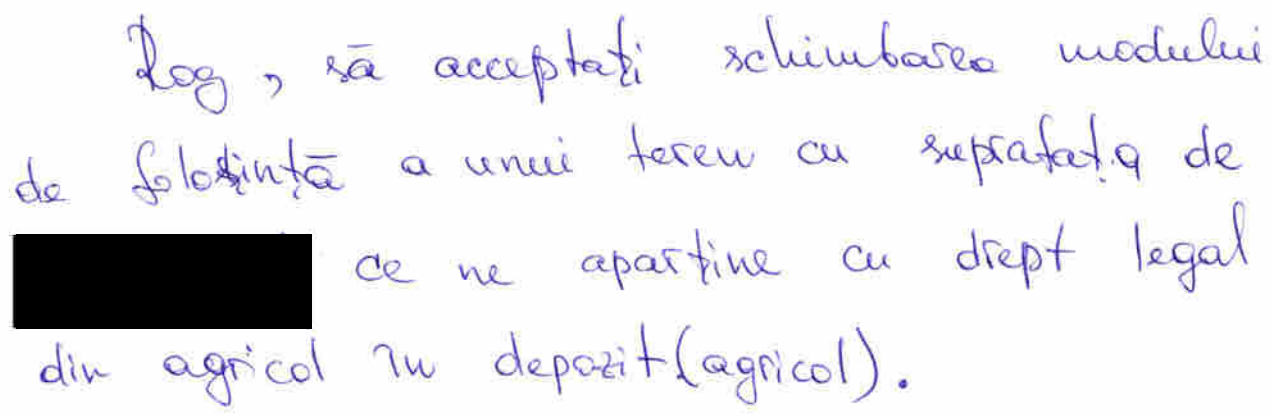 Rog, să acceptați schimbarea modului
de folosință a unui teren cu suprafața de
ce ne aparține cu drept legal
din agricol în depozit(agricol).